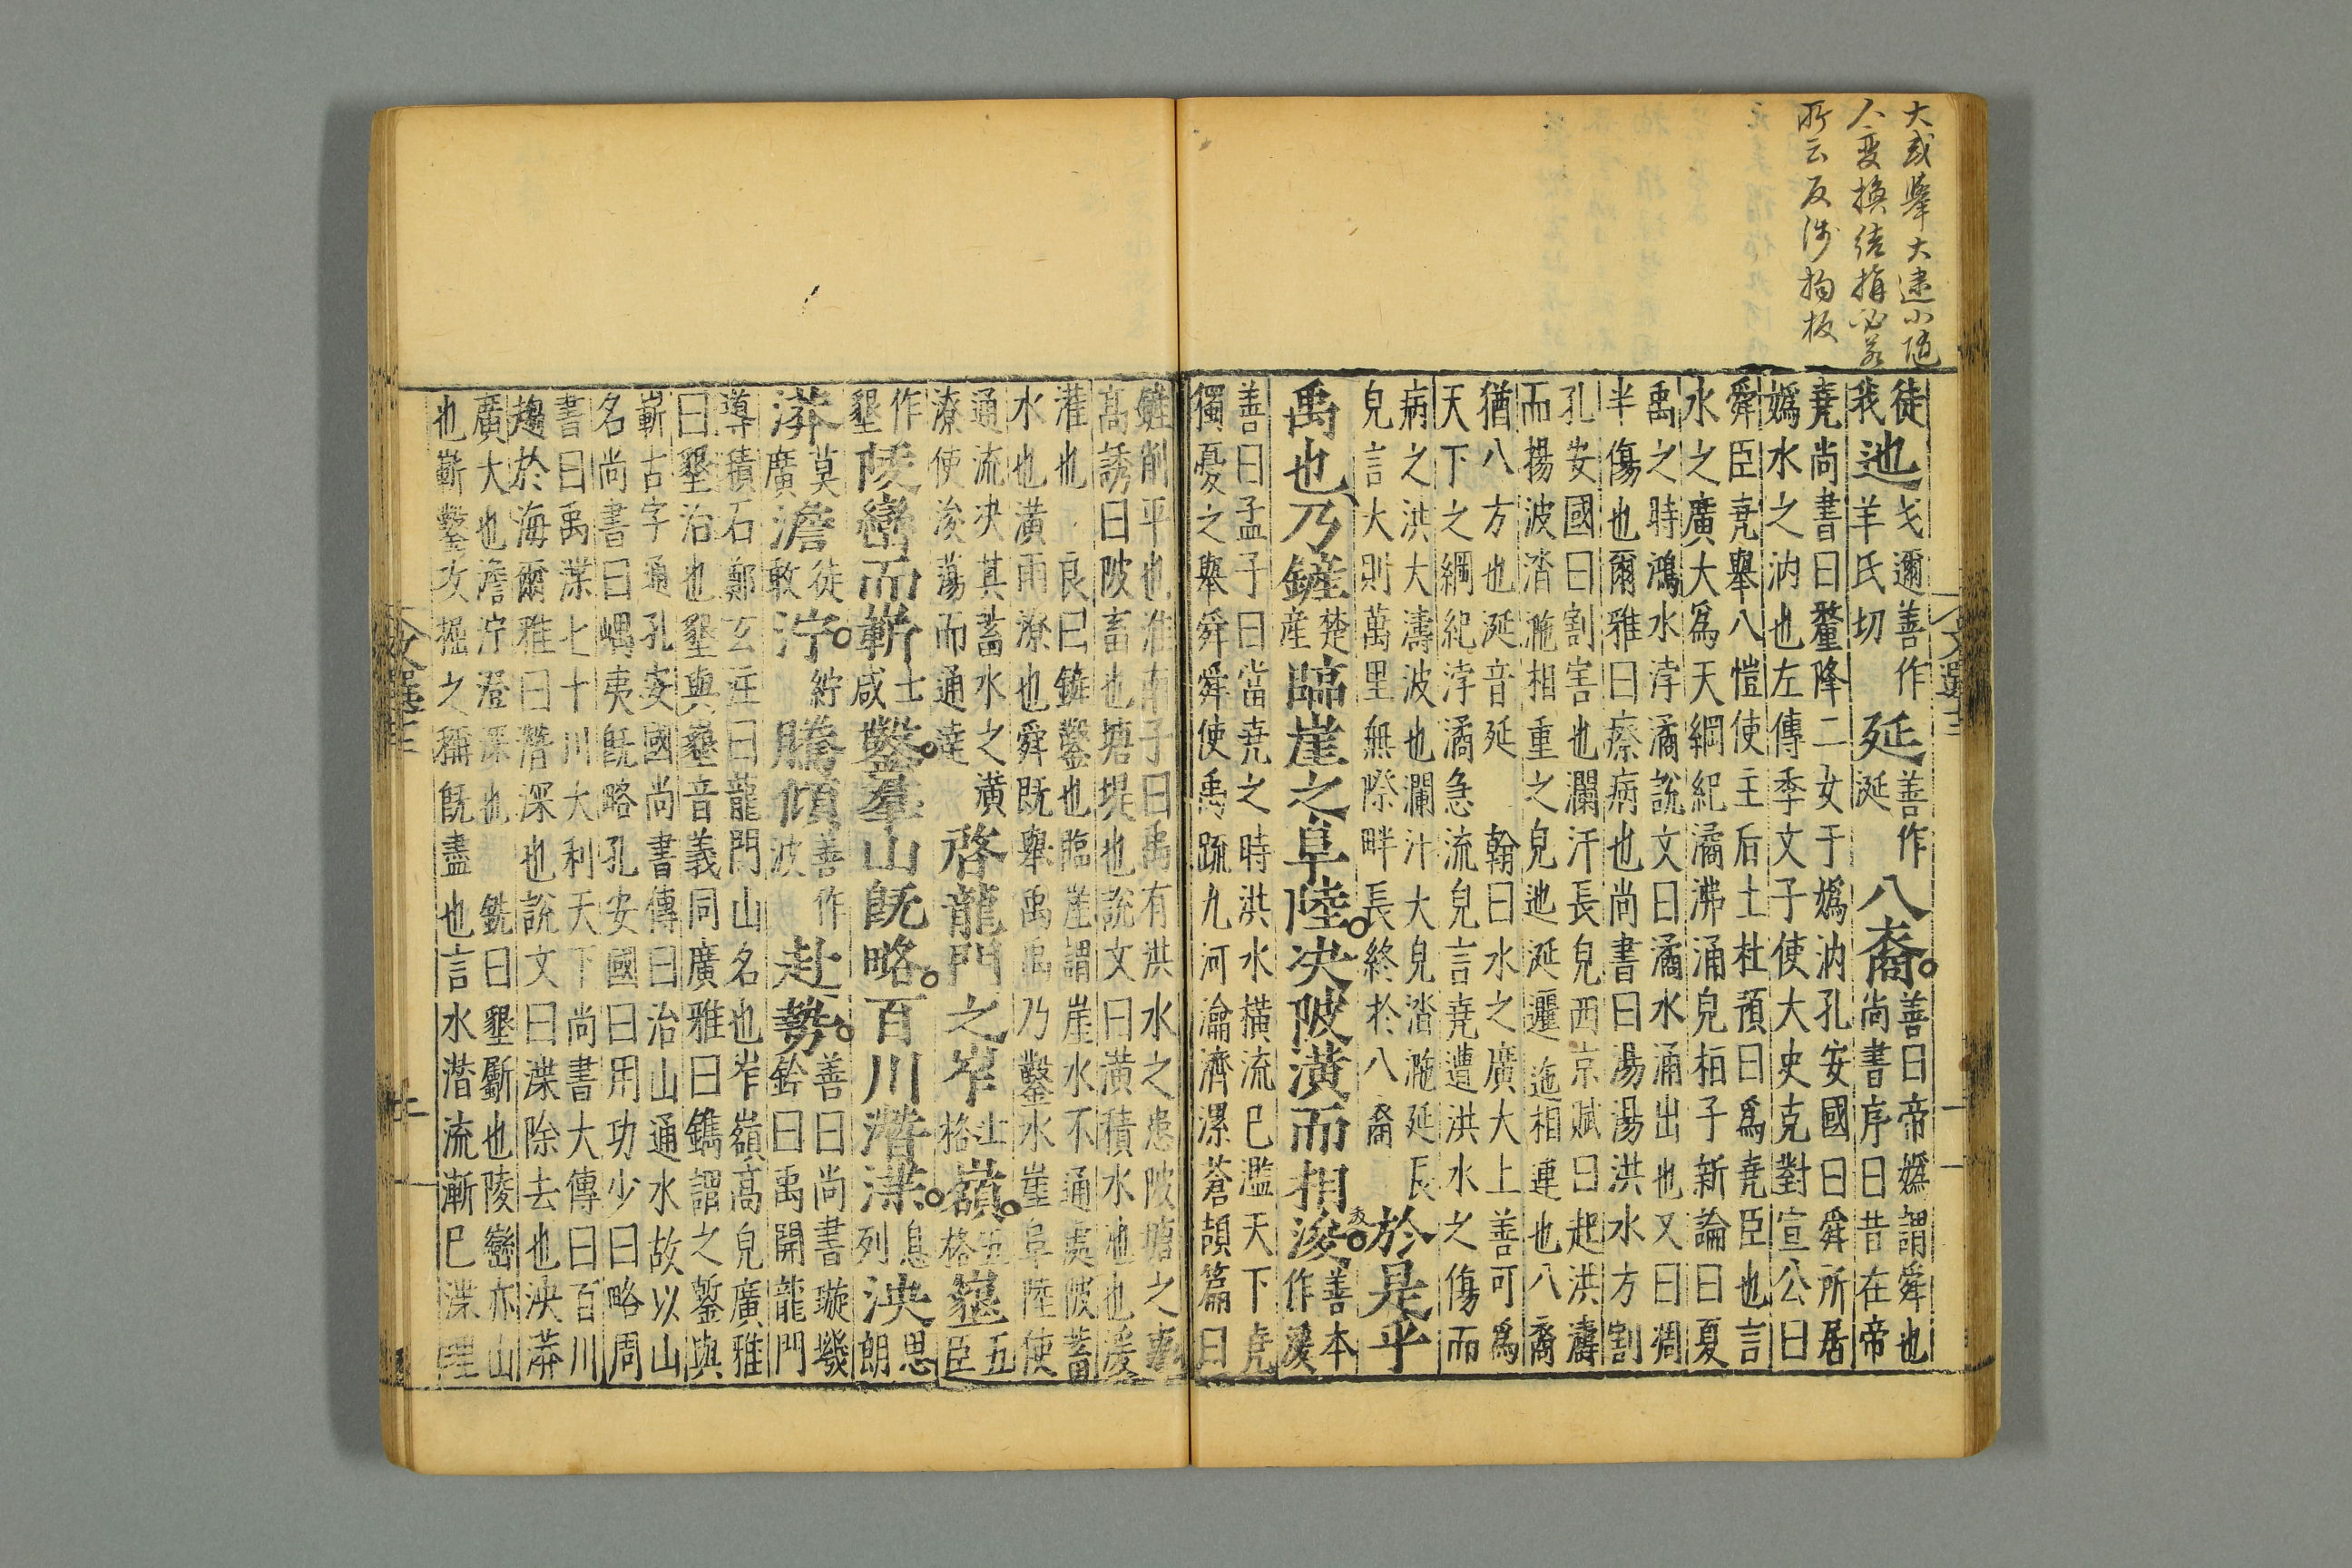 大或擧大遺小隨
人変換結構必若
所云反涉拘板
徒我迆弋邇善作羊氏切延善作涎八裔。善曰帝嬀謂舜也尚書序曰昔在帝
堯尚書曰釐降二女于嬀汭孔安國曰舜所居
嬀水之汭也左傳季文子使大史克對宣公曰
舜臣堯舉八愷使主后土杜預曰爲堯臣也言
水之廣大爲天綱紀潏沸涌皃桓子新論曰夏
禹之時鴻水浡潏說文曰潏水涌出也又曰凋
半傷也爾雅曰瘵病也尚書曰湯湯洪水方割
孔安國曰割害也瀾汗長皃西京賦曰起洪濤
而揚波涾㴰相重之皃迆涎邐迤相連也八裔
猶八方也涎音延 翰曰水之廣大上善可爲
天下之綱紀浡潏急流皃言堯遭洪水之傷而
病之洪大濤波也瀾汁大皃涾㴰延長
皃言大則萬里無際畔長終於八裔 於是乎
禹也乃鏟楚產臨崖之阜陸。決陂潢而相浚。善本作㳶
善曰孟子曰當堯之時洪水橫流巳濫天下堯
獨憂之舉舜舜使禹疏九河瀹濟漯蒼頡篇曰
鏟削平也淮南子曰禹有洪水之患陂塘之事
高誘曰陂畜也塘堤也說文曰潢積水池也㳶
灌也 良曰鏟鑿也臨崖謂崖水不通處陂蓄
水也潢雨潦也舜既舉禹禹乃鑿水崖阜陸使
通流決其蓄水之潢潦使浚蕩而通達 啓龍門之岝士格嶺。五格墾五臣
作墾陵巒而嶄士咸鑿。羣山旣略。百川潛渫。息列泱思朗
漭莫廣澹徒敢泞。紵騰傾善作波赴勢。善曰尚書璇璣鈐曰禹開龍門
導積石鄭玄注曰龍門山名也岝嶺高皃廣雅
曰墾治也墾與𡐨音義同廣雅曰鐫謂之鏨與
嶄古字通孔安國尚書傳曰治山通水故以山
名尚書曰嵎夷旣略孔安國曰用功少曰略周
書曰禹渫七十川大利天下尚書大傳曰百川
趨於海爾雅曰潛深也說文曰渫除去也泱漭
廣大也澹泞澄深也 銑曰墾斸也陵巒亦山
也嶄鑿攻掘之稱旣盡也言水潛流漸巳渫理